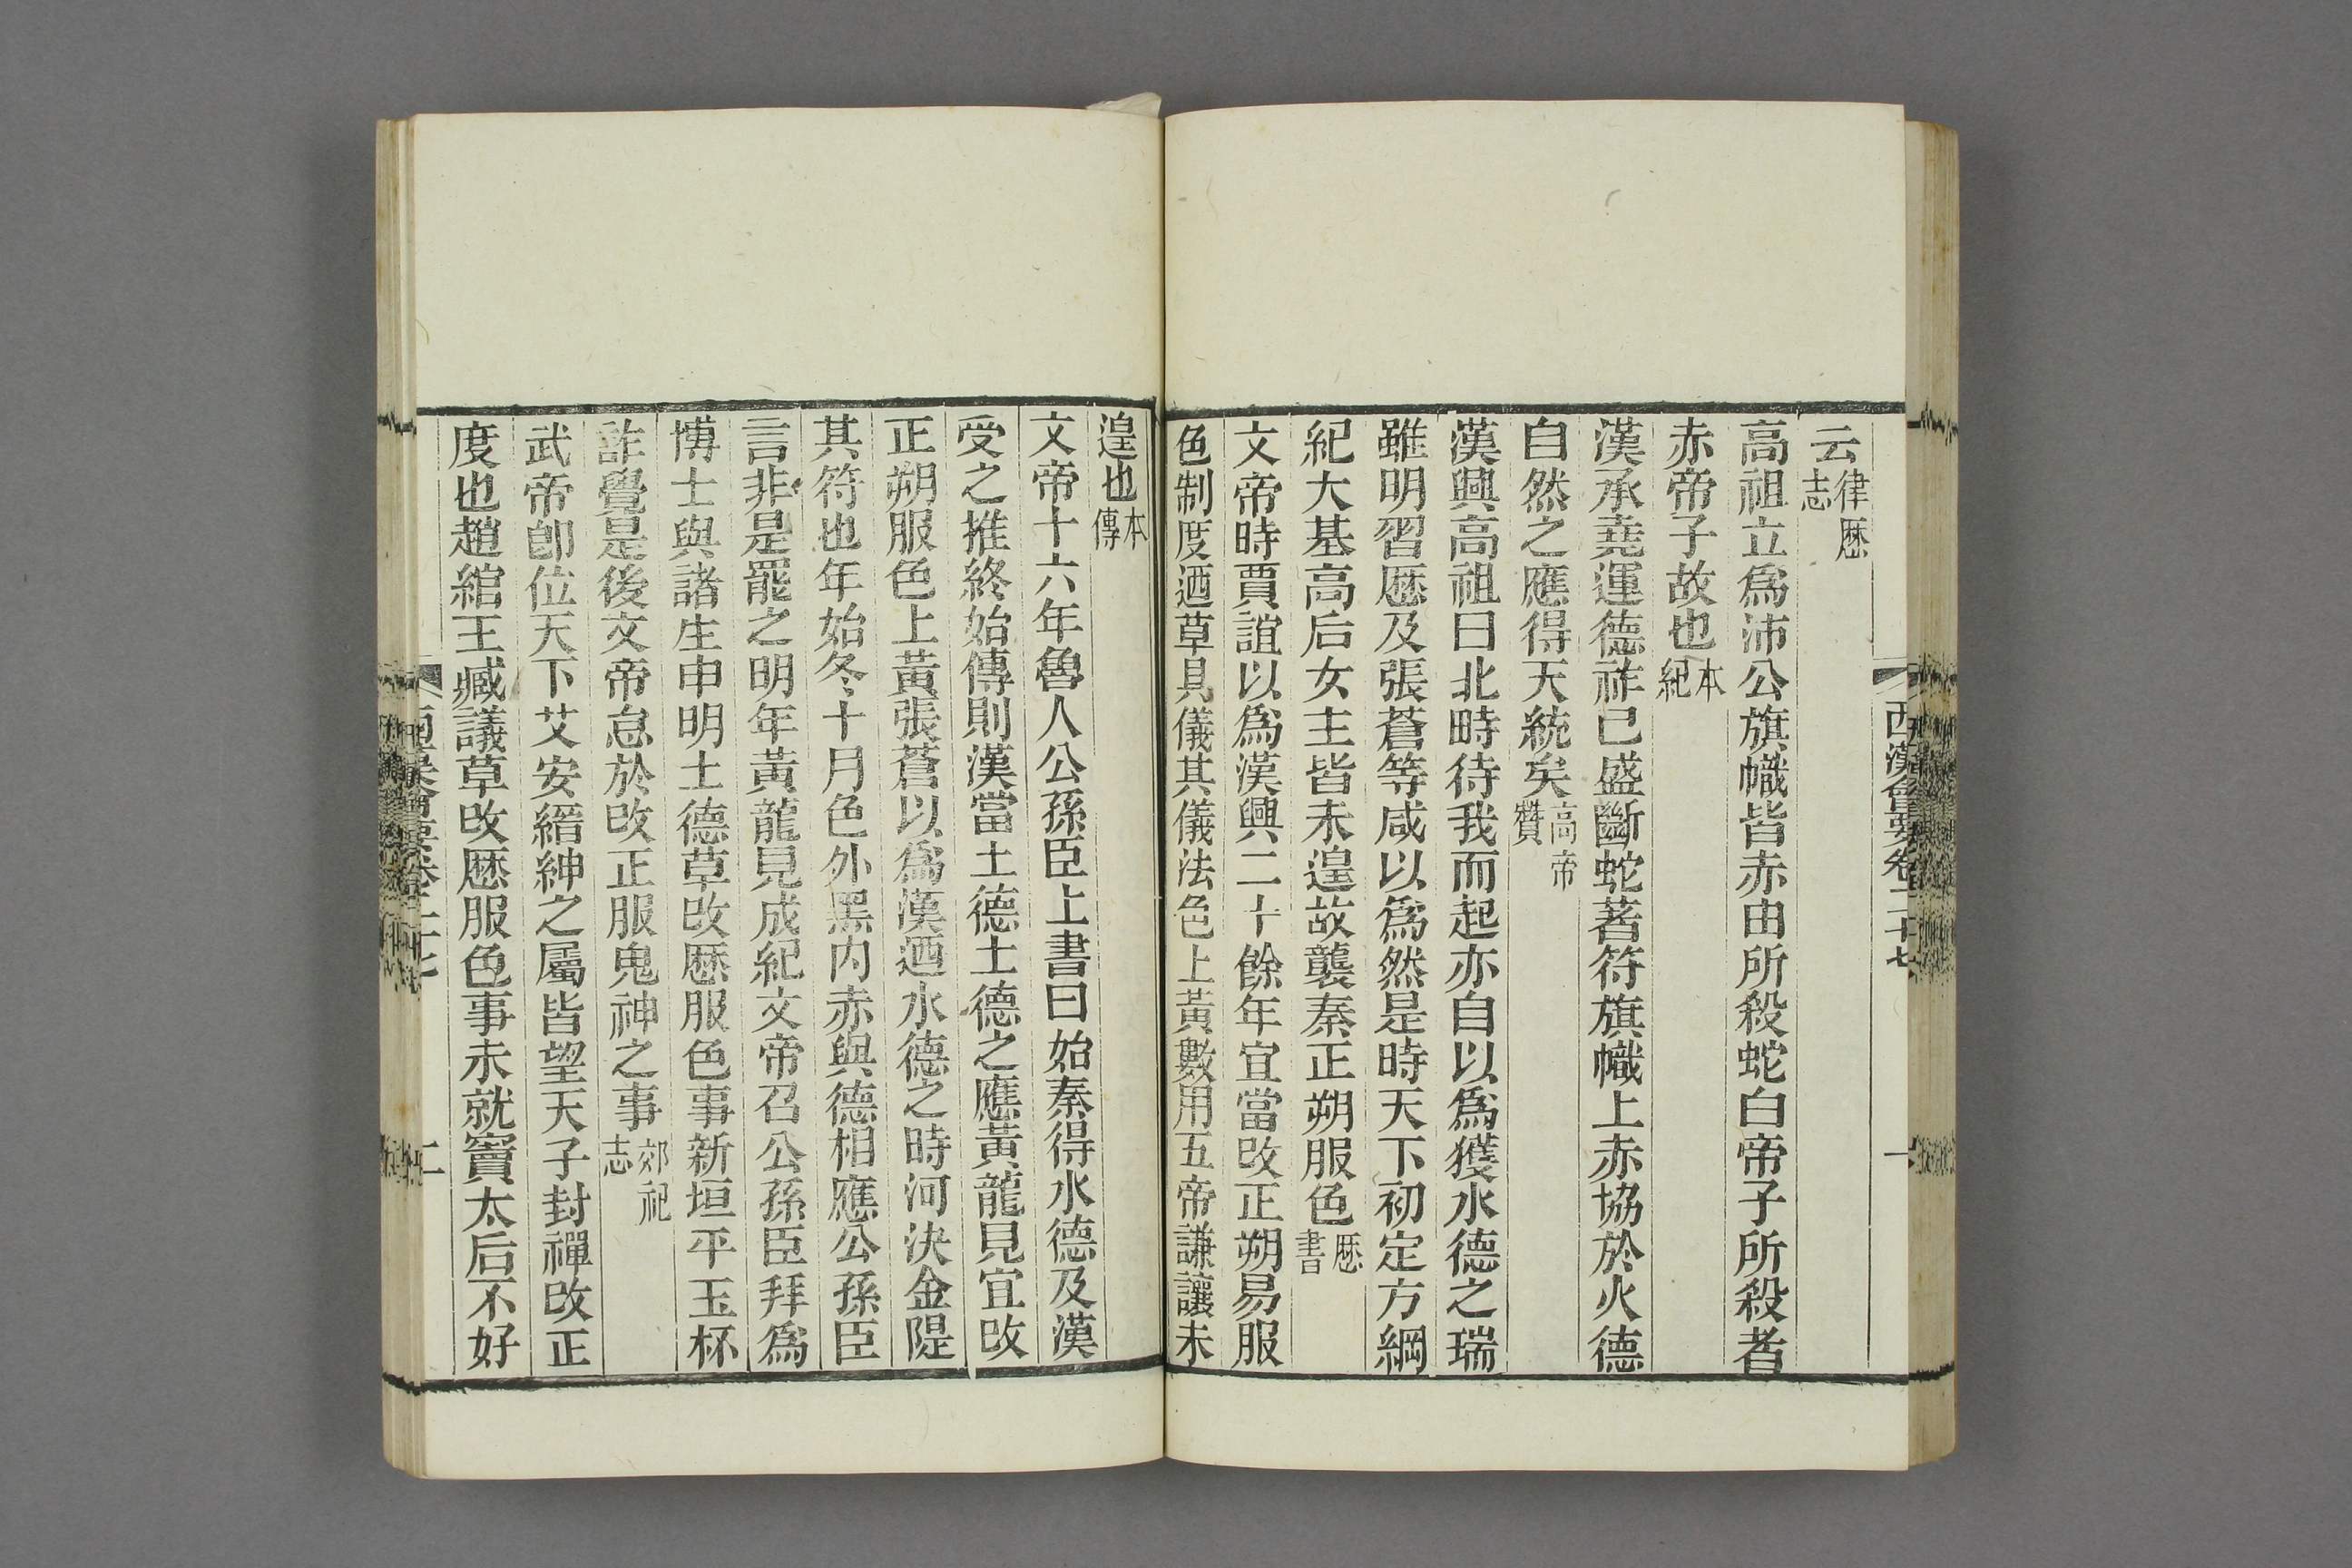 西漢會要卷二十七
一
云律歷志
高祖立爲沛公旗幟皆赤由所殺蛇白帝子所殺者
赤帝子故也本紀
漢承堯運德祚已盛斷蛇著符旗幟上赤協於火德
自然之應得天統矣高帝贊
漢興高祖曰北畤待我而起亦自以爲獲水德之瑞
雖明習歷及張蒼等咸以爲然是時天下初定方綱
紀大基高后女主皆未遑故襲秦正朔服色歷書
文帝時賈誼以爲漢興二十餘年宜當改正朔易服
色制度迺草具儀其儀法色上黃數用五帝謙讓未
遑也本傳
文帝十六年魯人公孫臣上書曰始秦得水德及漢
受之推終始傳則漢當土德土德之應黃龍見宜改
正朔服色上黃張蒼以爲漢迺水德之時河決金隄
其符也年始冬十月色外黑內赤與德相應公孫臣
言非是罷之明年黃龍見成紀文帝召公孫臣拜爲
博士與諸生申明土德草改歷服色事新垣平玉杯
詐覺是後文帝怠於改正服鬼神之事郊祀志
武帝卽位天下艾安縉紳之屬皆望天子封禪改正
度也趙綰王臧議草改歷服色事未就竇太后不好
西漢會要卷二十七
二